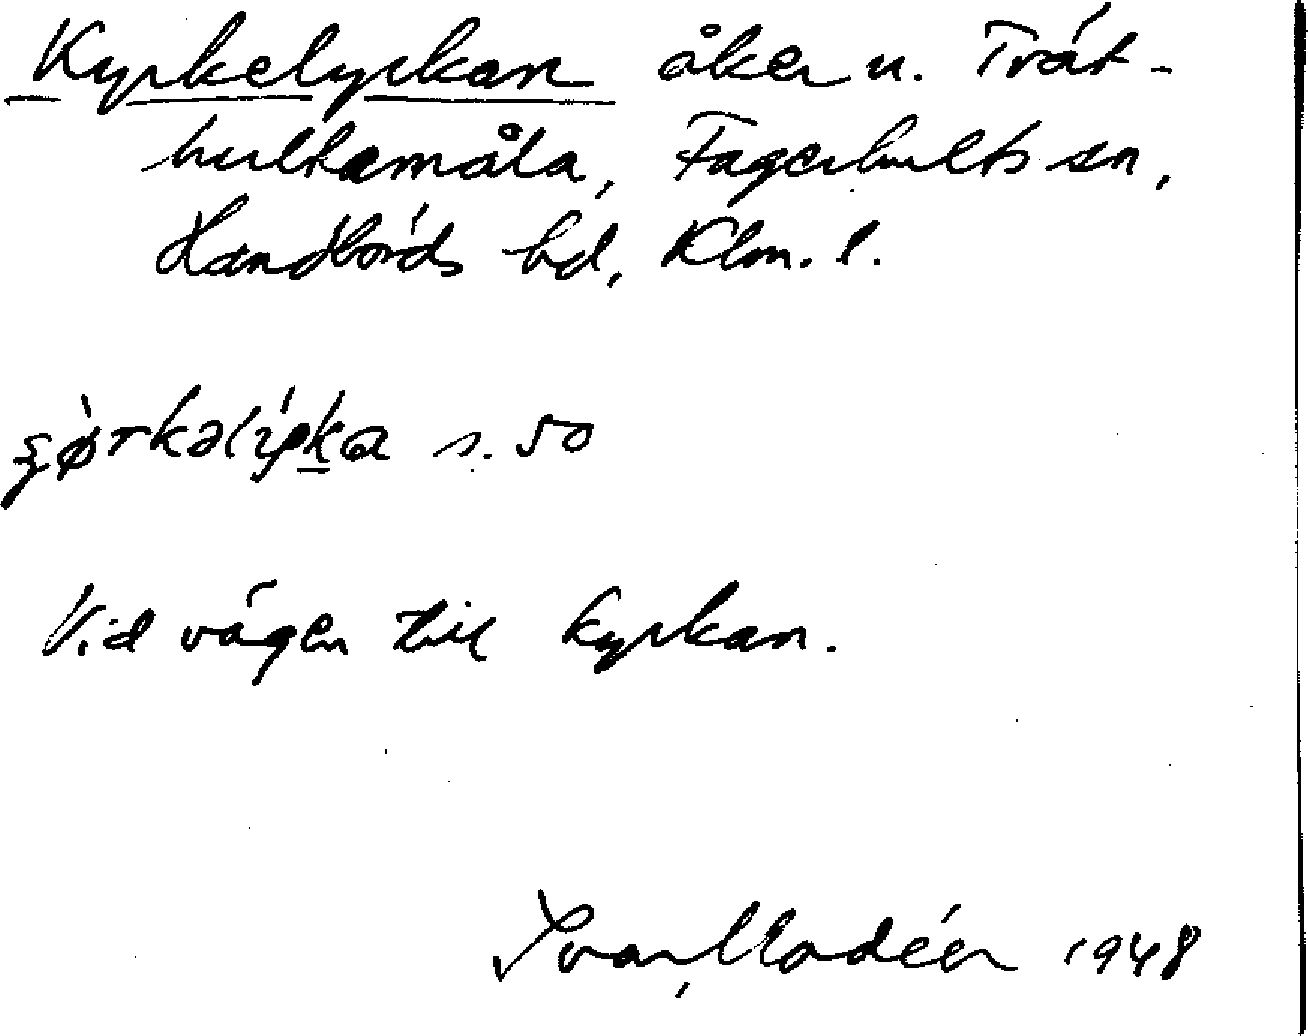 Kyrkelyckan åker u. Trät-
hultamåla, Fagerhults sn,
Handbörds hd, Klm. l.
s. 50
Vid vägen till kyrkan.
Ivar Modéer 1948